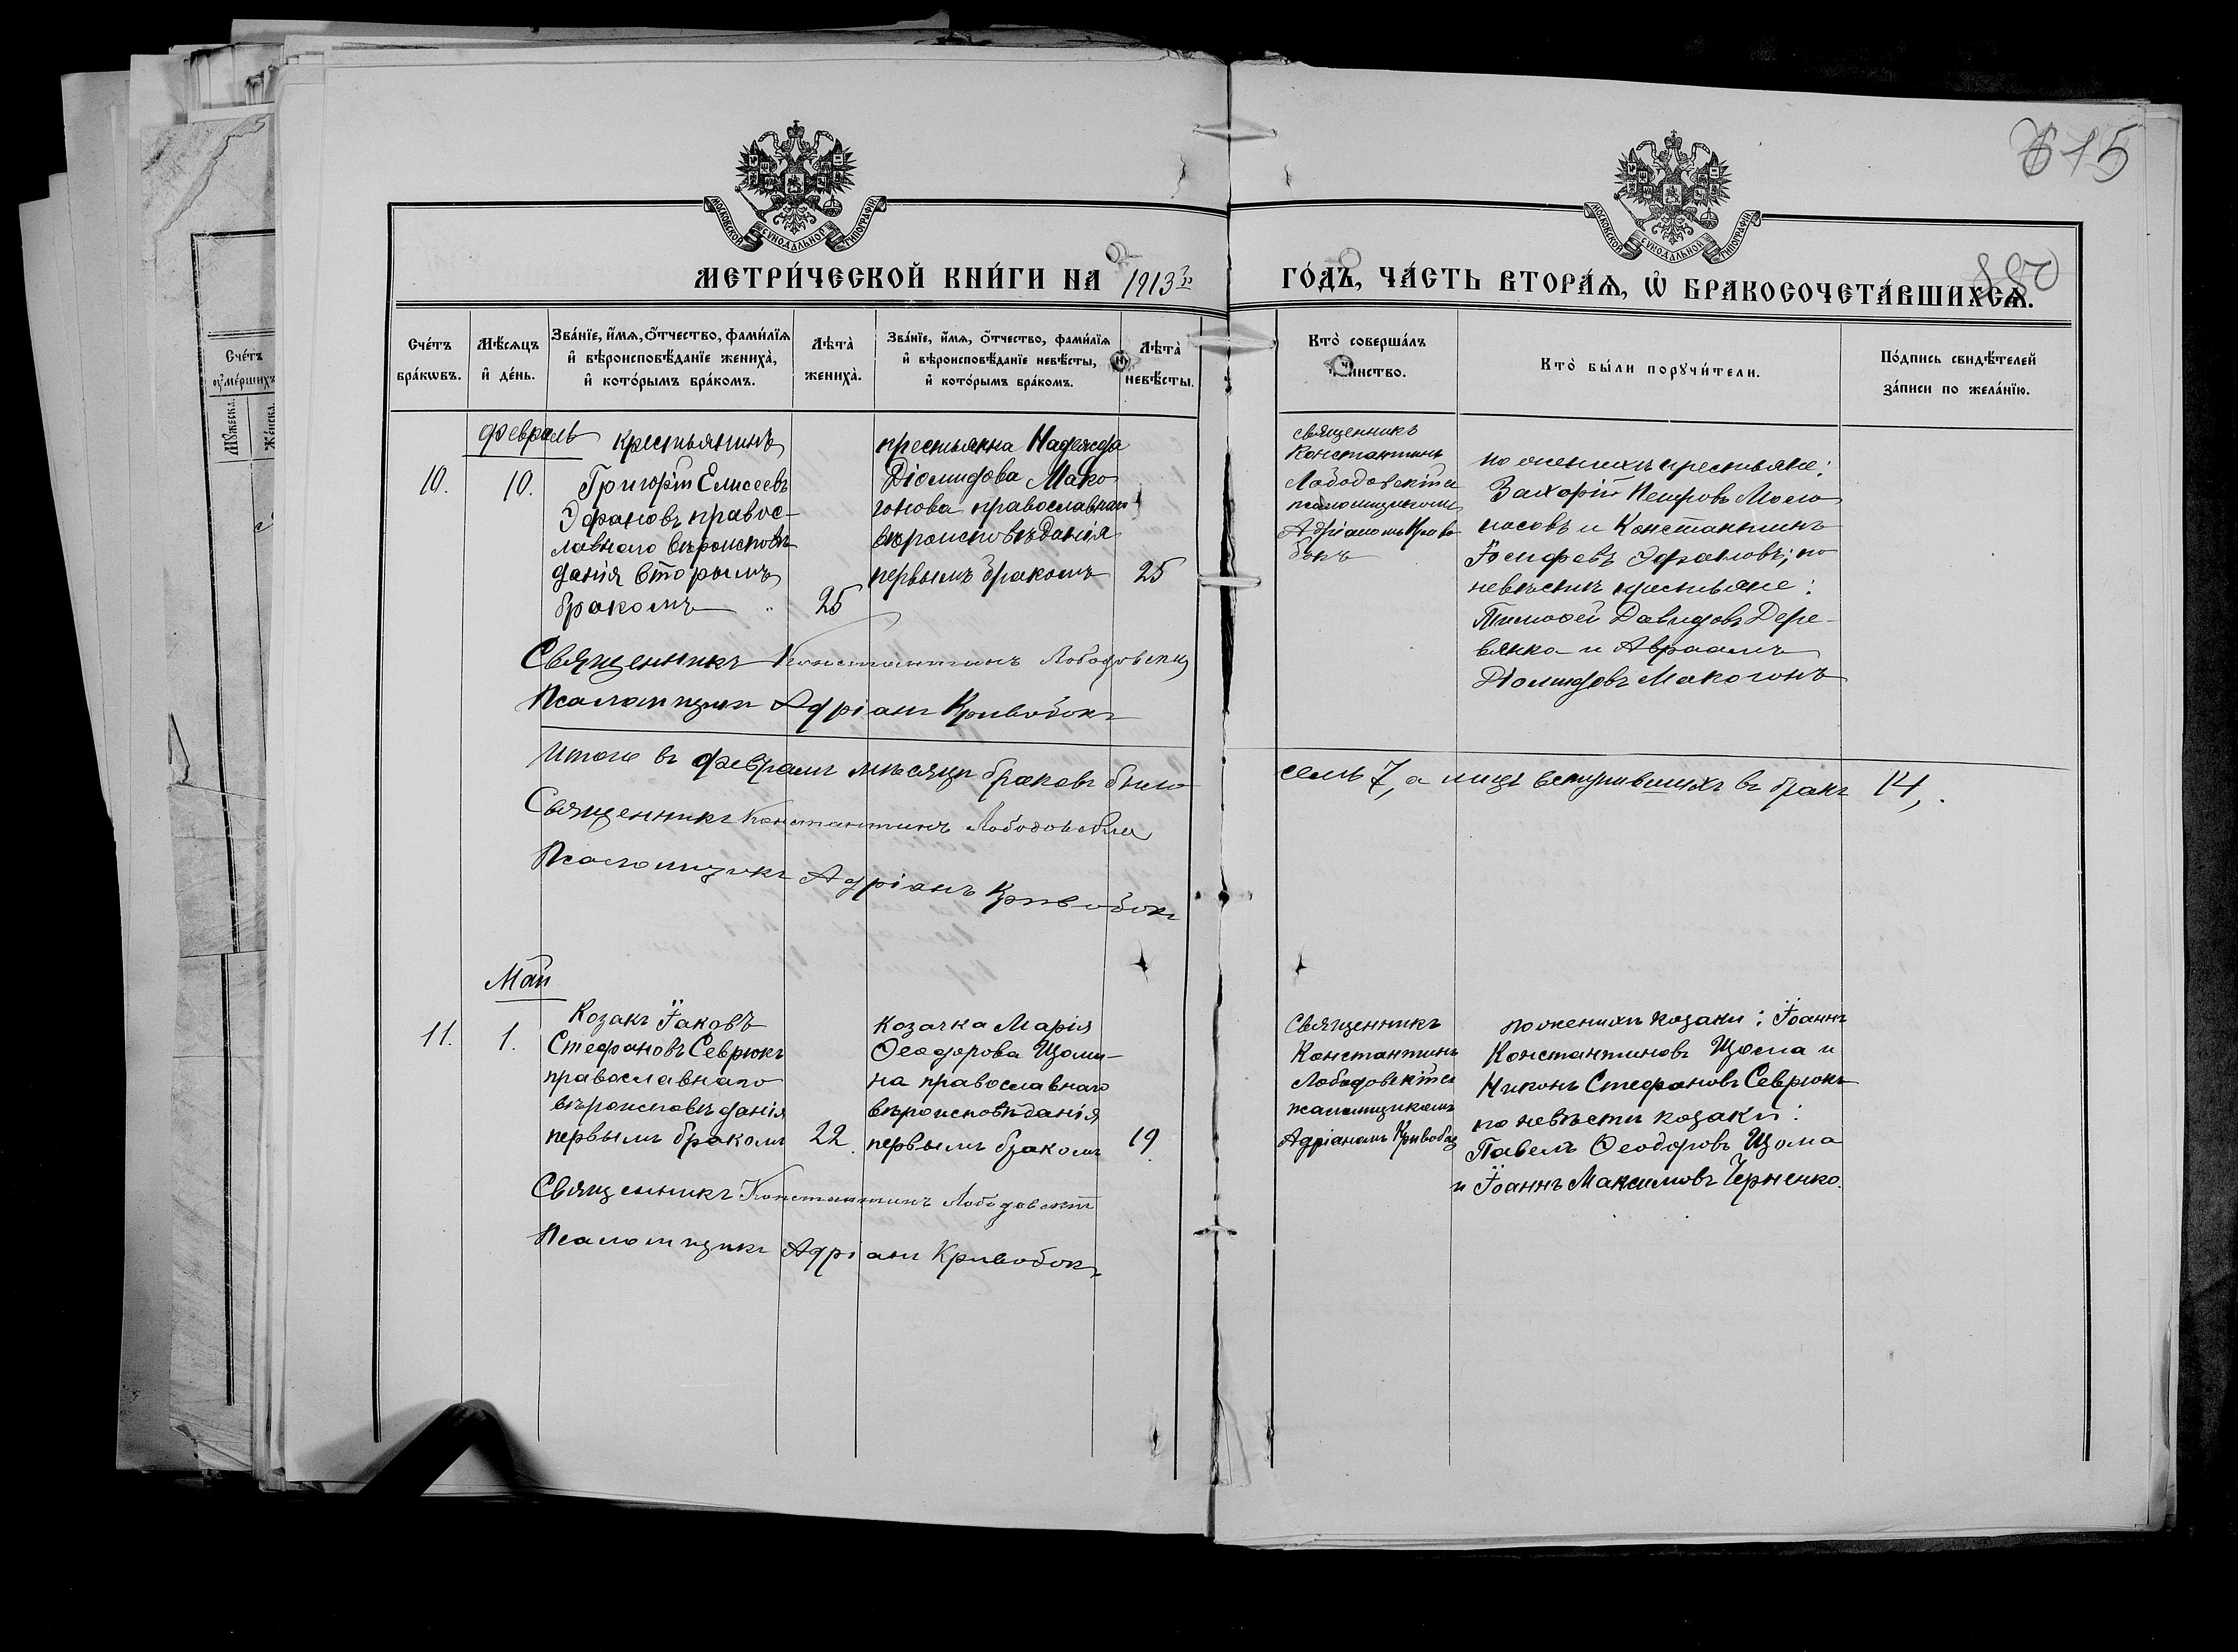 615
МОСКОВСКОЙ СУНОДАЛЬНОЙ ТИПОГРАФІИ
МОСКОВСКОЙ СУНОДАЛЬНОЙ ТИПОГРАФІИ
МЕТРИ́ЧЕСКОЙ КНИ́ГИ НА 1913 ГО́ДЪ, ЧА́СТЬ ВТОРА́Ѧ, Ѡ҆ БРАКОСОЧЕТА́ВШИХСѦ.
Сче́тъ
ᲂу҆ме́ршихъ
Мꙋ́жеска.
Же́нска.
Сче́тъ
бра́кѡвъ.
Мѣ́сяцъ
и҆ де́нь.
Зва́нїе, и҆́мя, ѻ҆́тчество, фами́лїя
и҆ вѣроисповѣ́данїе жениха̀,
и҆ кото́рымъ бра́комъ.
Лѣта̀
жениха̀.
Зва́нїе, и҆́мя, ѻ҆́тчество, фами́лїя
и҆ вѣроисповѣ́данїе невѣ́сты,
и҆ кото́рымъ бра́комъ.
Лѣта̀
невѣ́сты.
Кто̀ соверша́лъ
таинство.
Кто̀ бы́ли порꙋчи́тели.
По́дпись свидѣ́телей
за́писи по жела́нїю.
февраль
10.
10.
Крестьянинъ
Григорій Елисеевъ
Эфановъ правос-
лавнаго вѣроисповѣ
данія вторымъ
бракомъ
25
крестьянка Надежда
Діомидова Мако
гонова православнаго
вѣроисповѣданія
первымъ бракомъ
25
священникъ
Константинъ
Лободовскій съ
псаломщикомъ
Адріаномъ Криво
бокъ
по женихѣ крестьяне:
Захарій Петровъ
и Константинъ
Іосифовъ Эфановъ; по
невѣстѣ крестьяне:
Тимофей Давидовъ Дере-
вянко и Авраамъ
Діомидовъ Макогонъ
Священникъ Константинъ Лободовскій
Псаломщикъ Адріанъ Кривобокъ
Итого въ февралѣ мѣсяцѣ браковъ было семь 7, а лицъ вступившихъ въ бракъ 14,.
Священникъ Константинъ Лободовскій
Псаломщикъ Адріанъ Кривобокъ
Май
11.
1.
Козакъ Іаковъ
Стефановъ Севрюкъ
православнаго
вѣроисповѣданія
первымъ бракомъ
22.
Козачка Марія
Ѳеодорова Щоми-
на православнаго
вѣроисповѣданія
первымъ бракомъ
19.
Священникъ
Константинъ
Лободовскій съ
псаломщикомъ
Адріаномъ Кривобок
по женихѣ козаки: Іоаннъ
Константиновъ Щома и
Никонъ Стефановъ Севрюкъ
по невѣстѣ козаки:
Павелъ Ѳеодоровъ Щома
и Іоаннъ Максимовъ Черненко.
Священникъ Константинъ Лободовскій
Псаломщикъ Адріанъ Кривобокъ